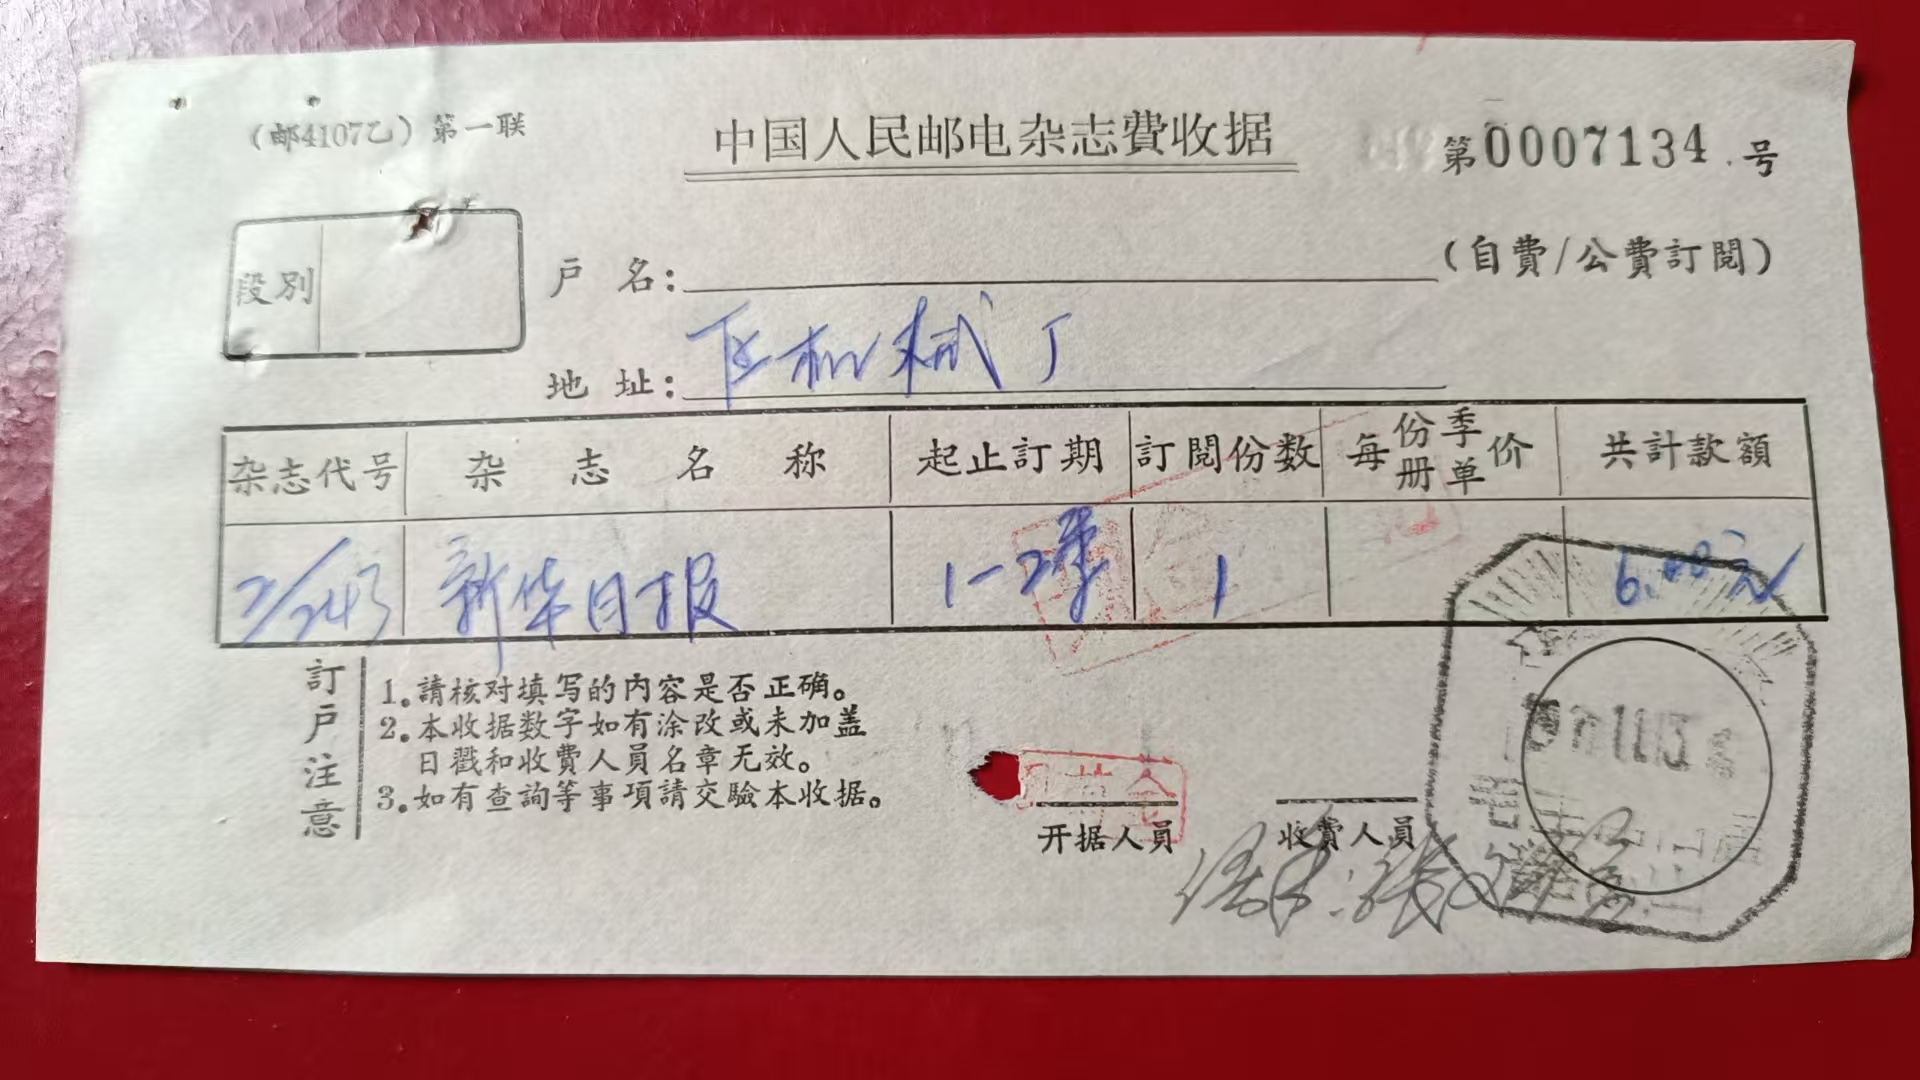 (邮4107乙)第一联
中国人民邮电杂志費收据
第0007134号
段別
户名:
(自費/公費訂閱)
地址: 机械厂
杂志代号 杂志名称 起止訂期 訂閱份数 每份季价 册单 共計款額
2/243 新华日报 1-2季 1 6.00元
訂户注意
1。請核对填写的内容是否正确。
2。本收据数字如有涂改或未加盖
日戳和收費人員名章无效。
3。如有查詢等事項請交驗本收据。
开据人員
收費人員